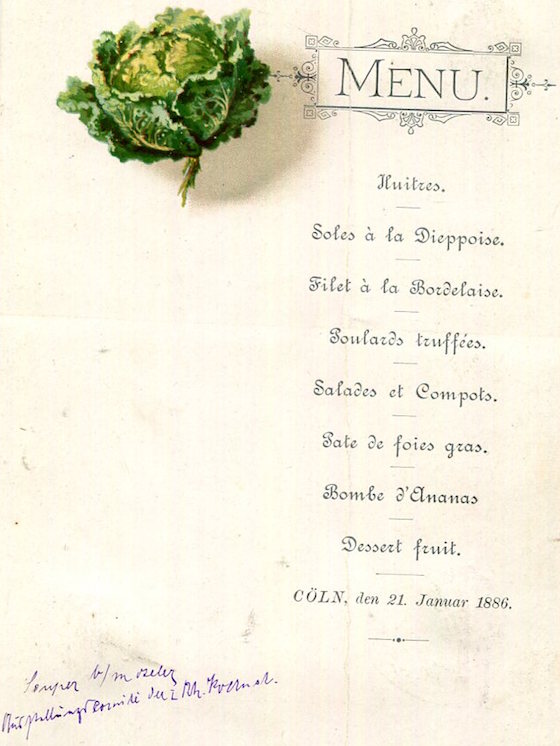 MENU.
Huitres.
Soles à la Dieppoise.
Filet à la Bordelaise.
Poulards truffées.
Salades et Compots.
Pate de foies gras.
Bombe d'Ananas
Dessert fruit.
CÖLN, den 21. Januar 1886.
Souper b/m